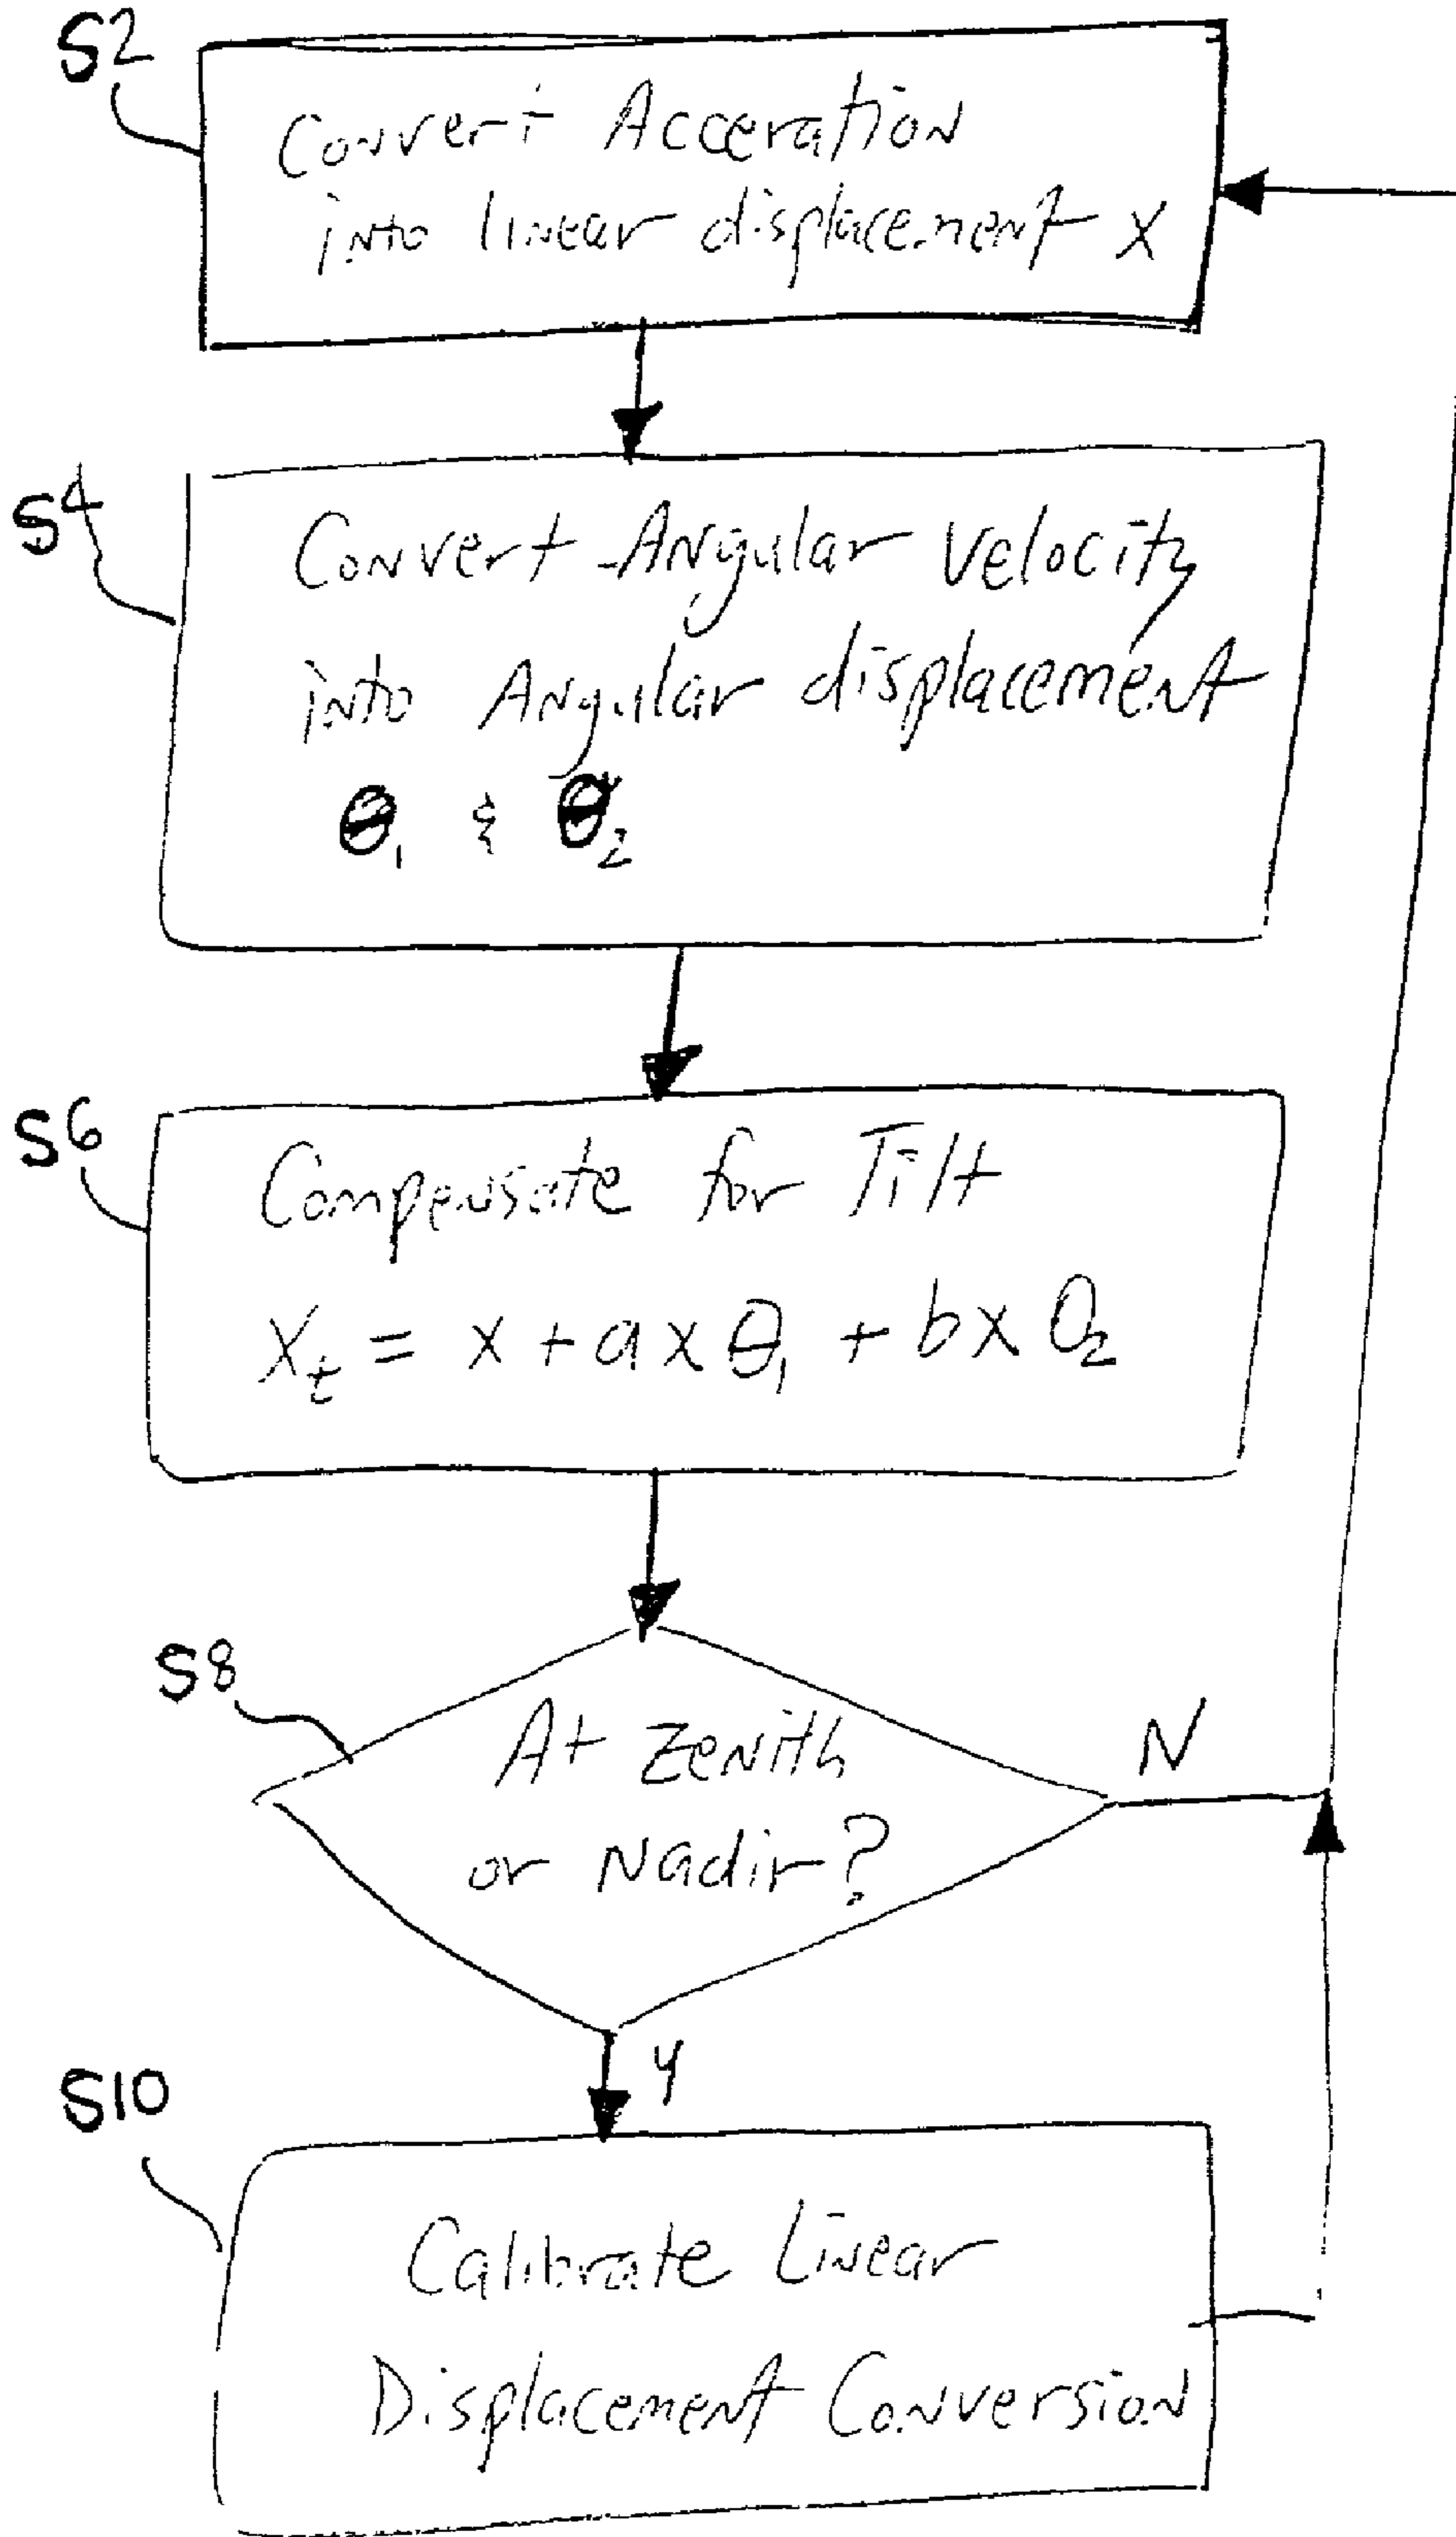 S2
Convert Acceration
into linear displacement x
S4
Convert Angular Velocity
into Angular displacement
θ₁ & θ₂
S6
Compensate for Tilt
Xₜ = x + a x θ₁ + b x θ₂
S8
At Zenith
or Nadir?
N
Y
S10
Calibrate Linear
Displacement Conversion